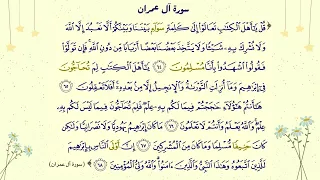 سورة آل عمران
قُلْ يَٰٓأَهْلَ ٱلْكِتَٰبِ تَعَالَوْا۟ إِلَىٰ كَلِمَةٍ سَوَآءٍۭ بَيْنَنَا وَبَيْنَكُمْ أَلَّا نَعْبُدَ إِلَّا ٱللَّهَ
وَلَا نُشْرِكَ بِهِۦ شَيْـًٔا وَلَا يَتَّخِذَ بَعْضُنَا بَعْضًا أَرْبَابًا مِّن دُونِ ٱللَّهِ ۚ فَإِن تَوَلَّوْا۟
فَقُولُوا۟ ٱشْهَدُوا۟ بِأَنَّا مُسْلِمُونَ ٦٤ يَٰٓأَهْلَ ٱلْكِتَٰبِ لِمَ تُحَآجُّونَ
فِىٓ إِبْرَٰهِيمَ وَمَآ أُنزِلَتِ ٱلتَّوْرَىٰةُ وَٱلْإِنجِيلُ إِلَّا مِنۢ بَعْدِهِۦٓ ۚ أَفَلَا تَعْقِلُونَ ٦٥
هَٰٓأَنتُمْ هَٰٓؤُلَآءِ حَٰجَجْتُمْ فِيمَا لَكُم بِهِۦ عِلْمٌ فَلِمَ تُحَآجُّونَ فِيمَا لَيْسَ لَكُم بِهِۦ
عِلْمٌ ۚ وَٱللَّهُ يَعْلَمُ وَأَنتُمْ لَا تَعْلَمُونَ ٦٦ مَا كَانَ إِبْرَٰهِيمُ يَهُودِيًّا وَلَا نَصْرَانِيًّا وَلَٰكِن
كَانَ حَنِيفًا مُّسْلِمًا وَمَا كَانَ مِنَ ٱلْمُشْرِكِينَ ٦٧ إِنَّ أَوْلَى ٱلنَّاسِ بِإِبْرَٰهِيمَ
لَلَّذِينَ ٱتَّبَعُوهُ وَهَٰذَا ٱلنَّبِىُّ وَٱلَّذِينَ ءَامَنُوا۟ ۗ وَٱللَّهُ وَلِىُّ ٱلْمُؤْمِنِينَ ٦٨ (سورة آل عمران)